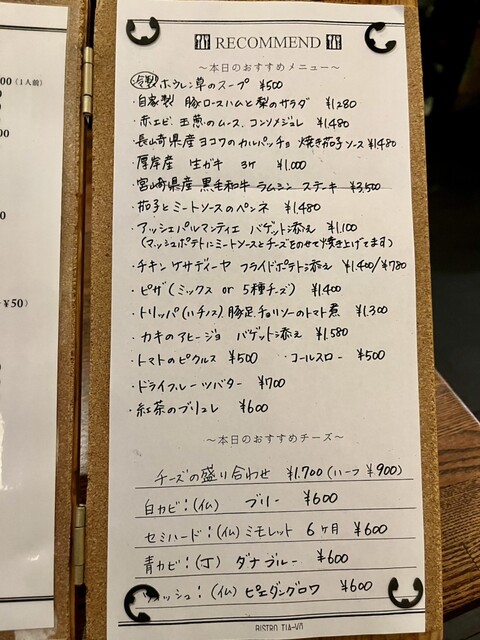 00(1人前)
¥50)
RECOMMEND
～本日のおすすめメニュー～
冷製 ホウレン草のスープ ¥500
・自家製 豚ロースハムと梨のサラダ ¥1280
・赤エビ、玉葱のムース、コンソメジュレ ¥1480
・長崎県産ヨコワのカルパッチョ 焼き茄子ソース ¥1480
・厚岸産 生ガキ 3ヶ ¥1.000
・宮崎県産 黒毛和牛 ラムシン ステキ ¥3,500
・茄子とミートソースのペンネ ¥1.480
・アッシェパルマンティエ バゲット添え ¥1.100
(マッシュポテトにミートソースとチーズをのせて焼き上げてます)
・チキンケサディーヤ フライドポテト添え ¥1.400/¥780
・ピザ(ミックス or 5種チーズ) ¥1.400
・トリッパ(ハチノス)豚足、チョリソーのトマト煮 ¥1.300
・カキのアヒージョ バゲット添え ¥1.580
・トマトのピクルス ¥500 ・コールスロー ¥500
・ドライフルーツバター ¥700
・紅茶のブリュレ ¥600
～本日のおすすめチーズ～
チーズの盛り合わせ ¥1.700(ハーフ ¥900)
白カビ：(仏) ブリー ¥600
セミハード：(仏)ミモレット 6ヶ月 ¥600
青カビ：(丁) ダナブルー ¥600
ォッシュ：(仏)ピエダングロワ ¥600
BISTRO TIA-YÜ